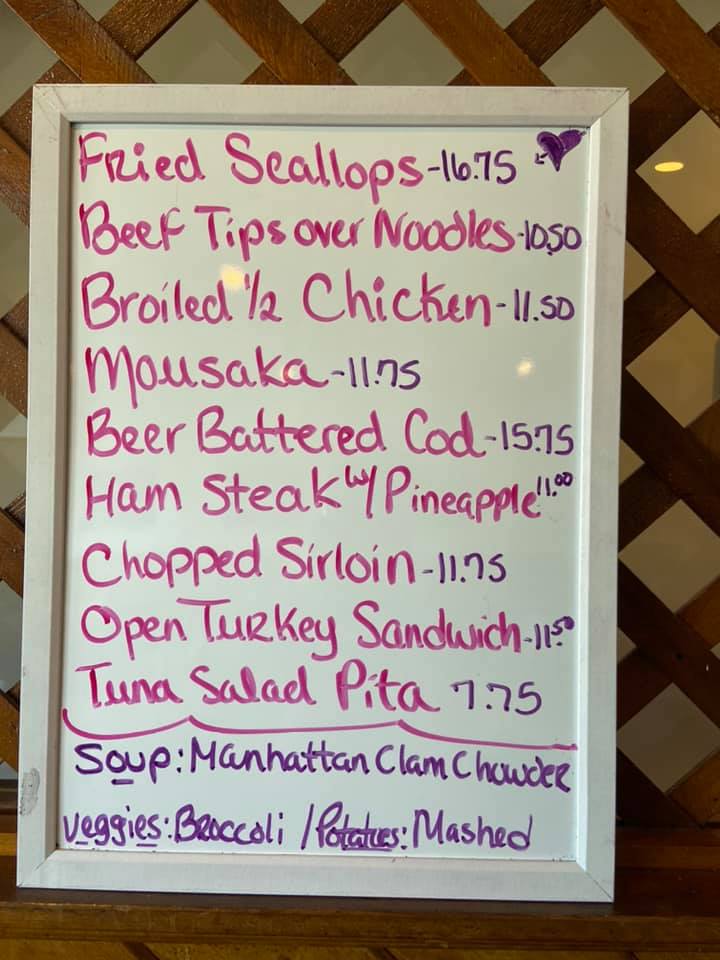 Fried Scallops-16.75
Beef Tips over Noodles-10.50
Broiled 1/2 Chicken-11.50
Mousaka-11.75
Beer Battered Cod-15.75
Ham Steak w/Pineapple 11.00
Chopped Sirloin-11.75
Open Turkey Sandwich-11.50
Tuna Salad Pita 7.75
Soup: Manhattan Clam Chowder
veggies: Broccoli / Potatoes: Mashed